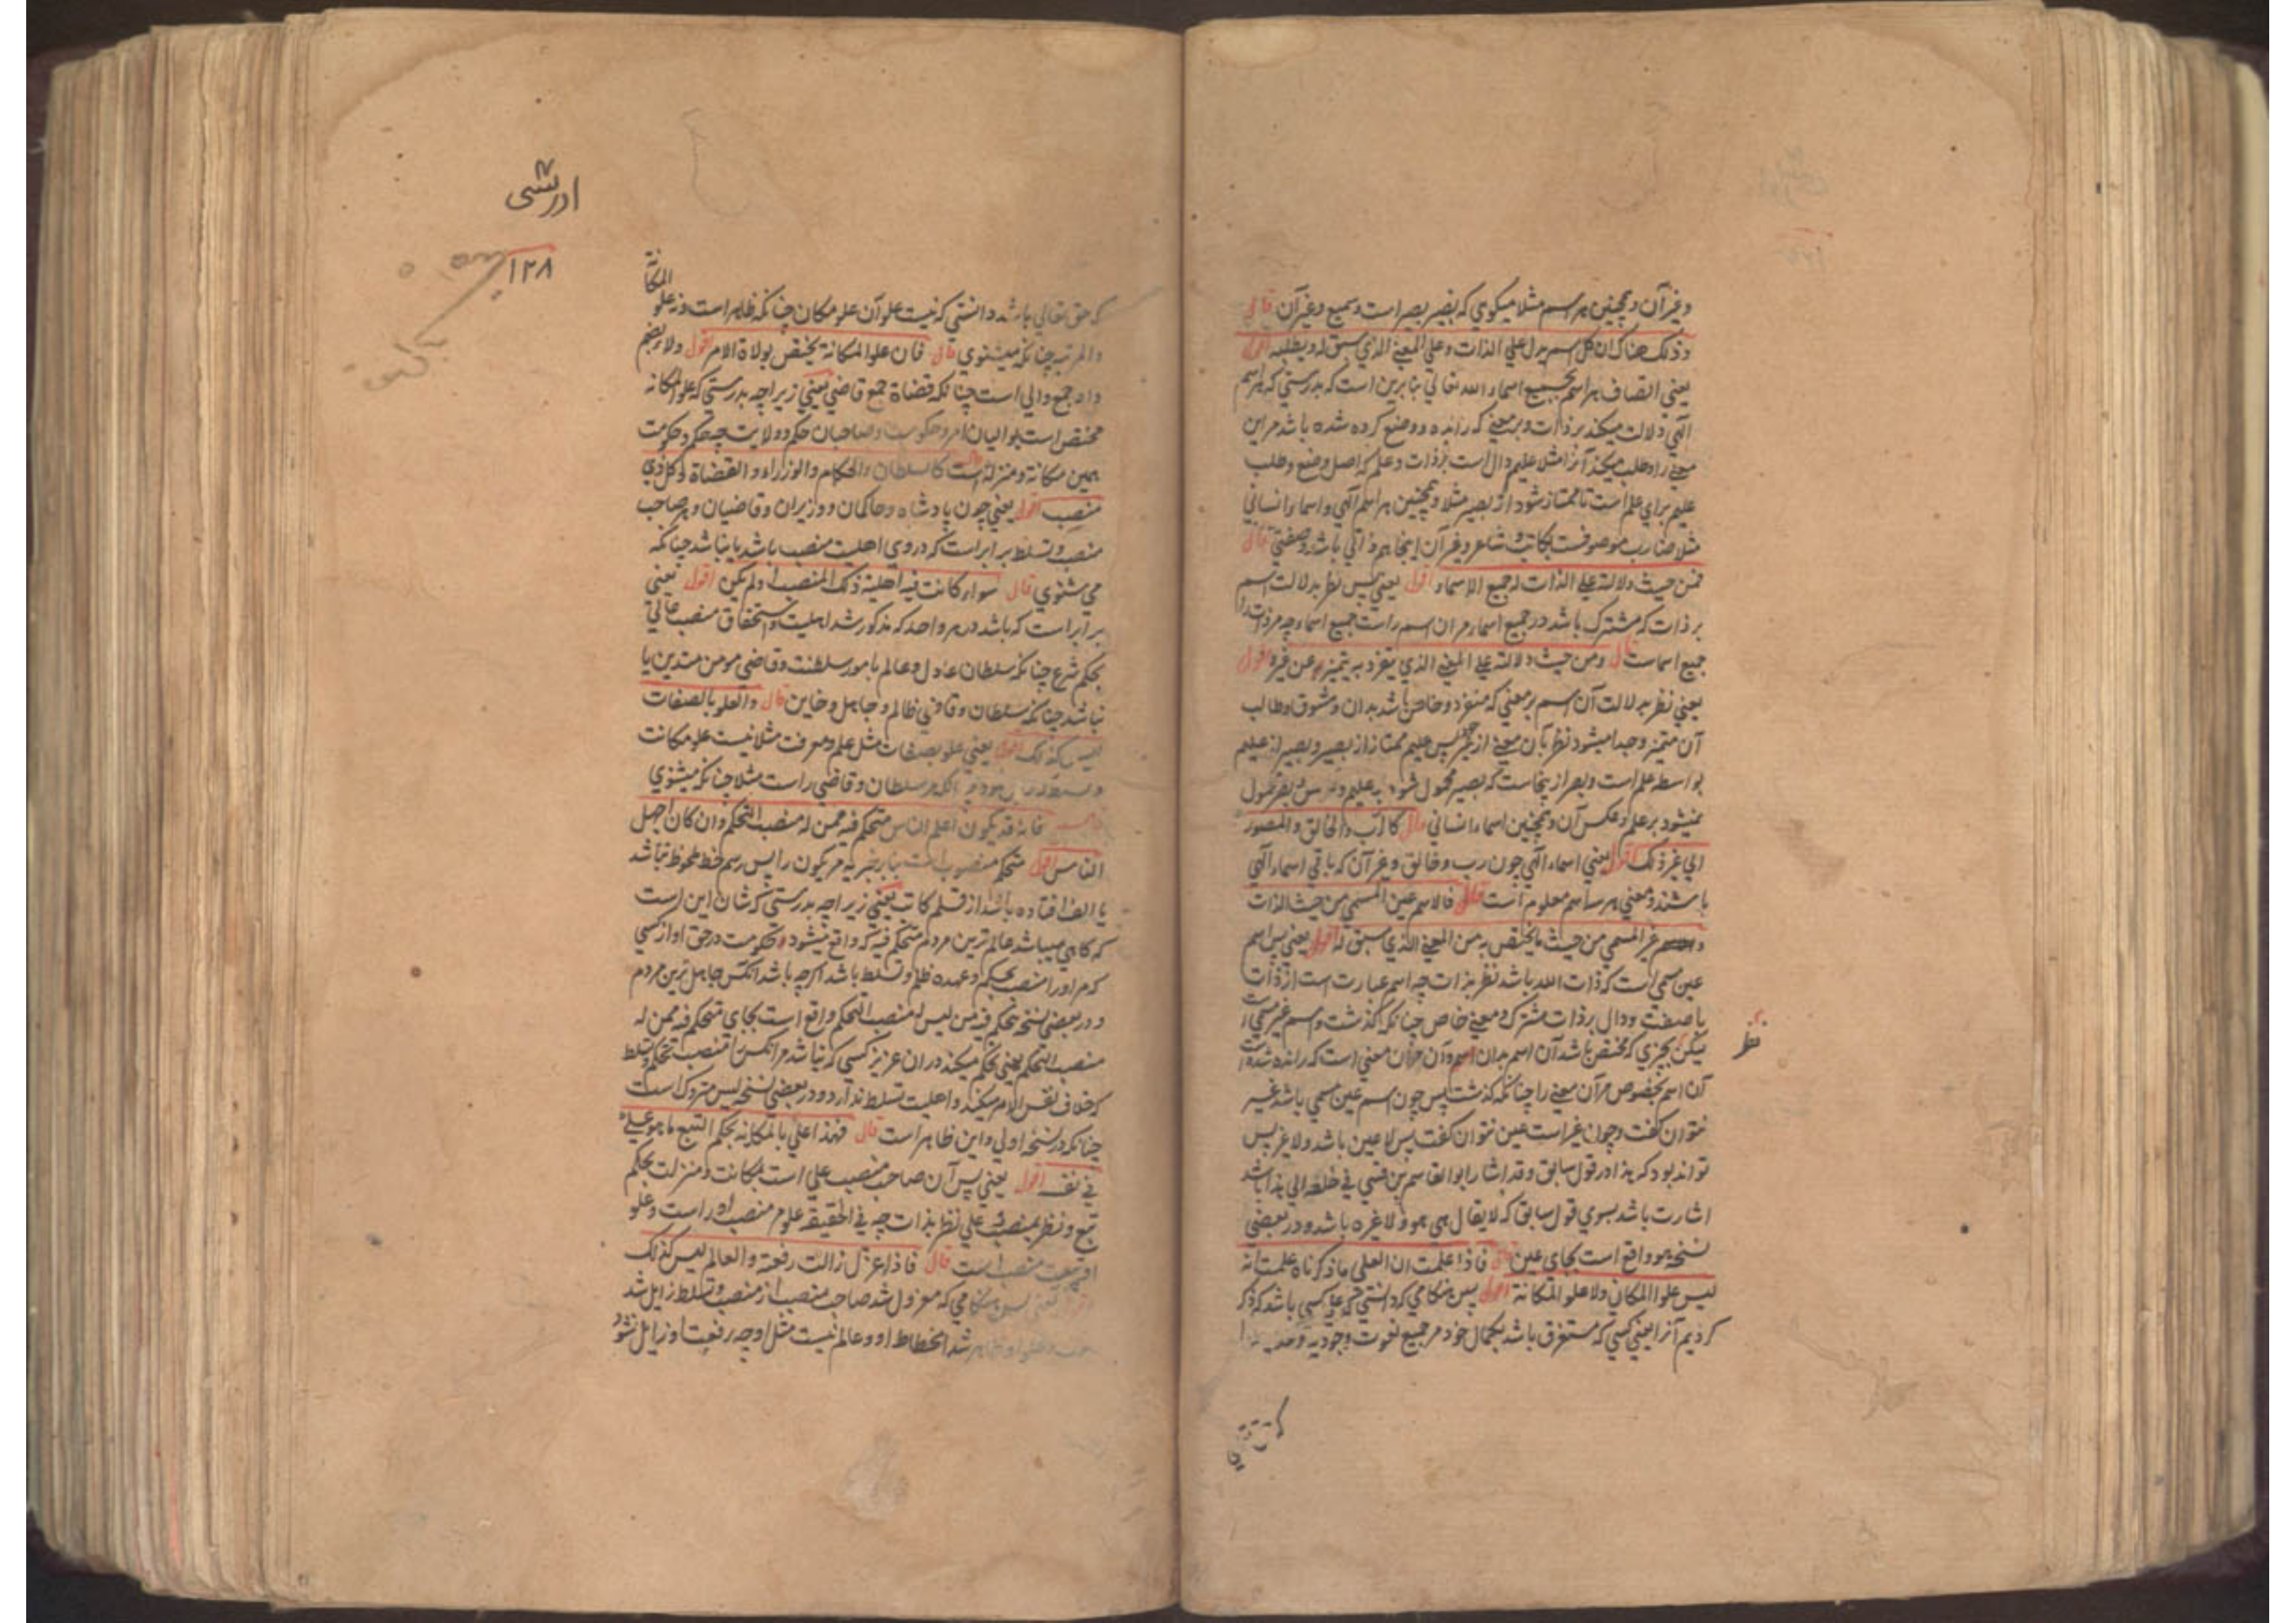 وغیر آن و همچنین هر اسم مثلا میکوی که بصیر بصیر است و سمیع و غیر آن قال
وذلک هناک ان کل اسم یدل علی الذات وعلی المعنی الذی سبق له ویطلبه اقول
یعنی اتصاف هر اسم بجمیع اسماء الله تعالی بنابرین است که بدرستی که هر اسم
الهی دلالت میکند بر ذات و بر معنی که رانده و وضع کرده شده باشد مر این
معنی را و طلب میکند آنرا مثلا علیم دال است بر ذات و علم که اصل وضع و طلب
علیم برای علم است تا ممتاز شود از بصیر مثلا و همچنین هر اسم الهی و اسماء انسانی
مثلا ضارب موصوفست بکاتب و شاعر و غیر آن اینجا هم ذاتی باشد وصفتی قال
فمن حیث دلالته علی الذات له جمیع الاسماء اقول یعنی پس نظر بدلالت اسم
بر ذات که مشترک باشد در جمیع اسماء مر آن اسم راست جمیع اسماء چه مر ذات را
جمیع اسماست قال ومن حیث دلالته علی المعنی الذی ینفرد به یتمیز عن غیره اقول
یعنی نظر بدلالت آن اسم بر معنی که منفرد و خاص باشد بدان و مشوق و طالب
آن متمیز و جدا میشود نظر بآن معنی از غیر پس علیم ممتاز از بصیر و بصیر از علیم
بواسطه علم است و بصر ازینجاست که بصیر محمول شود بر علیم و بصر محمول
نمیشود بر علم و عکس آن و همچنین اسماء انسانی قال کالرب والخالق والمصور
الی غیر ذلک اقول یعنی اسماء الهی چون رب و خالق و غیر آن که باقی اسماء الهی
باشند و معنی هر سه اسم معلوم است قال فالاسم عین المسمی من حیث الذات
والاسم غیر المسمی من حیث ما یختص به من المعنی الذی سبق له اقول یعنی پس اسم
عین مسمی است که ذات الله باشد نظر بذات چه اسم عبارت است از ذات
با صفت و دال بر ذات مشترک و معنی خاص چنانکه گذشت و اسم غیر مسمی است
لیکن بچیزی که مختص باشد آن اسم بدان اسم و آن مر آن معنی است که رانده شده است
نظر
آن اسم بخصوص مر آن معنی را چنانکه گذشت پس چون اسم عین مسمی باشد غیر
نتوان گفت و چون غیر است عین نتوان گفت پس لا عین باشد و لا غیر پس
تواند بود که هذا در قول سابق وقد اشار ابو القاسم بن قسی فی خلعه الی هذا باشد
اشارت باشد بسوی قول سابق که لا یقال هی هو ولا غیره باشد و در بعضی
نسخه هو واقع است بجای عین قال فاذا علمت ان العلی ما ذکرناه علمت انه
لیس علو المکان ولا علو المکانة اقول پس هنگامی که دانستی که علی کسی باشد که ذکر
کردیم آنرا یعنی کسی که مستغرق باشد بکمال خود مر جمیع نعوت وجودیه و
که حق تعالی
ادریسی
۱۲۸
المکانة
که حق تعالی باشد دانستی که نیست علو آن علو مکان چنانکه ظاهر است و نه علو
والمرتبه چنانکه میشنوی قال فان علو المکانة یختص بولاة الامر اقول ولاة بضم
واو جمع والی است چنانکه قضاة جمع قاضی یعنی زیرا چه بدرستی که علو المکانه
مختص است بوالیان امر و حکومت و صاحبان حکم و ولایت چه حکم و حکومت
همین مکانة و منزلة است کالسلطان والحکام والوزراء والقضاة وکل ذی
منصب اقول یعنی چون پادشاه و حاکمان و وزیران و قاضیان و هر صاحب
منصب و تسلط برابر است که در وی اهلیت منصب باشد یا نباشد چنانکه
می شنوی قال سواء کانت فیه اهلیة ذلک المنصب او لم یکن اقول یعنی
برابر است که باشد در هر واحد که مذکور شد اهلیت و استحقاق منصب عالی
بحکم شرع چنانکه سلطان عادل و عالم بامور سلطنت و قاضی مومن متدین یا
نباشد چنانکه سلطان و قاضی ظالم و جاهل و خاین قال والعلو بالصفات
لیس کذلک اقول یعنی علو بصفات مثل علم و معرفت مثلا نیست علو مکانت
سلطان و قاضی راست مثلا چنانکه میشنوی
فانه قد یکون اعلم الناس متحکم فیه ممن له منصب التحکم وان کان اجهل
الناس اقول متحکم منصوب است بنابر خبریه مر یکون را پس رسم خط ملحوظ نباشد
یا الف افتاده باشد از قلم کاتب یعنی زیرا چه بدرستی که شان این است
که گاهی میباشد عالم ترین مردم متحکم فیه که واقع میشود حکومت در حق او از کسی
که مر او را منصب تحکم و عهده ظلم و تسلط باشد اگرچه باشد آنکس جاهل ترین مردم
و در بعضی نسخه تحکم فیه من لیس له منصب التحکم واقع است بجای متحکم فیه ممن له
منصب التحکم یعنی تحکم میکند در آن عزیز کسی که نباشد مر آنکس را منصب تحکم و تسلط
که خلاف نفس الامر میکند و اهلیت تسلط ندارد و در بعضی نسخه لیس متروک است
چنانکه در نسخه اولی و این ظاهر است قال فهذا علی بالمکانة بحکم التبع ما هو علی
فی نفسه اقول یعنی پس آن صاحب منصب علی است بمکانت و منزلت بحکم
تبع و نظر بمنصب نه علی نظر بذات چه فی الحقیقه علو مر منصب او راست و علو
او بتبعیت منصب است قال فاذا عزل زالت رفعته والعالم لیس کذلک
اقول یعنی پس هنگامی که معزول شد صاحب منصب از منصب و تسلط زایل شد
شد انحطاط او و عالم نیست مثل او چه رفعت او زایل نشود